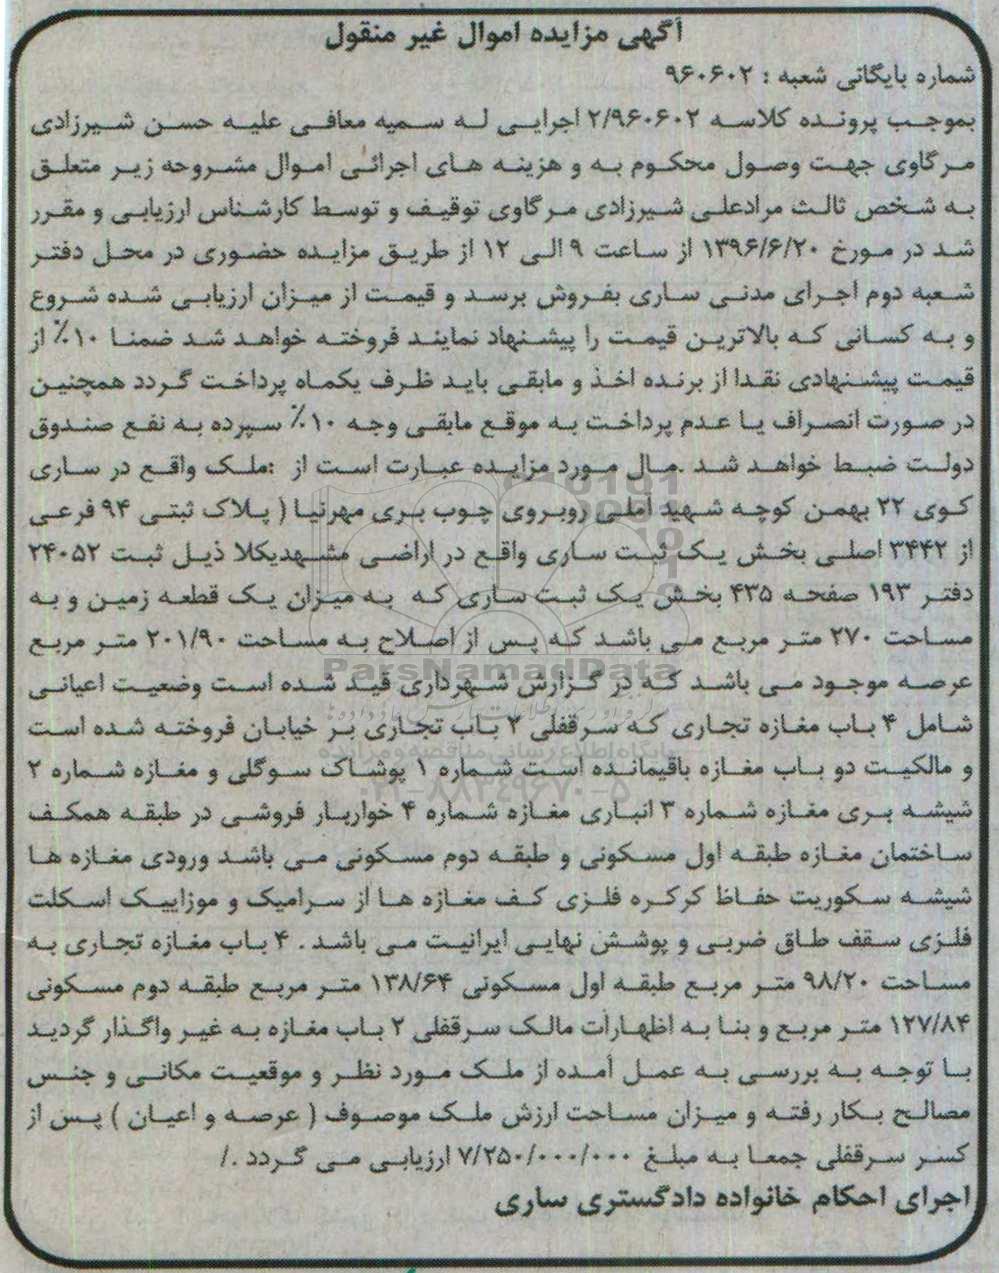 آگهی مزایده اموال غیر منقول
شماره بایگانی شعبه : ۹۶۰۶۰۲
بموجب پرونده کلاسه ۲/۹۶۰۶۰۲ اجرایی له سمیه معافی علیه حسن شیرزادی
مرگاوی جهت وصول محکوم به و هزینه های اجرائی اموال مشروحه زیر متعلق
به شخص ثالث مرادعلی شیرزادی مرگاوی توقیف و توسط کارشناس ارزیابی و مقرر
شد در مورخ ۱۳۹۶/۶/۲۰ از ساعت ۹ الی ۱۲ از طریق مزایده حضوری در محل دفتر
شعبه دوم اجرای مدنی ساری بفروش برسد و قیمت از میزان ارزیابی شده شروع
و به کسانی که بالاترین قیمت را پیشنهاد نمایند فروخته خواهد شد ضمنا ۱۰٪ از
قیمت پیشنهادی نقدا از برنده اخذ و مابقی باید ظرف یکماه پرداخت گردد همچنین
در صورت انصراف یا عدم پرداخت به موقع مابقی وجه ۱۰٪ سپرده به نفع صندوق
دولت ضبط خواهد شد .مال مورد مزایده عبارت است از :ملک واقع در ساری
کوی ۲۲ بهمن کوچه شهید آملی روبروی چوب بری مهرنیا ( پلاک ثبتی ۹۴ فرعی
از ۳۴۴۲ اصلی بخش یک ثبت ساری واقع در اراضی مشهدیکلا ذیل ثبت ۲۴۰۵۲
دفتر ۱۹۳ صفحه ۴۳۵ بخش یک ثبت ساری که به میزان یک قطعه زمین و به
مساحت ۲۷۰ متر مربع می باشد که پس از اصلاح به مساحت ۲۰۱/۹۰ متر مربع
عرصه موجود می باشد که در گزارش شهرداری قید شده است وضعیت اعیانی
شامل ۴ باب مغازه تجاری که سرقفلی ۲ باب تجاری بر خیابان فروخته شده است
و مالکیت دو باب مغازه باقیمانده است شماره ۱ پوشاک سوگلی و مغازه شماره ۲
شیشه بری مغازه شماره ۳ انباری مغازه شماره ۴ خواربار فروشی در طبقه همکف
ساختمان مغازه طبقه اول مسکونی و طبقه دوم مسکونی می باشد ورودی مغازه ها
شیشه سکوریت حفاظ کرکره فلزی کف مغازه ها از سرامیک و موزاییک اسکلت
فلزی سقف طاق ضربی و پوشش نهایی ایرانیت می باشد . ۴ باب مغازه تجاری به
مساحت ۹۸/۲۰ متر مربع طبقه اول مسکونی ۱۳۸/۶۴ متر مربع طبقه دوم مسکونی
۱۲۷/۸۴ متر مربع و بنا به اظهارات مالک سرقفلی ۲ باب مغازه به غیر واگذار گردید
با توجه به بررسی به عمل آمده از ملک مورد نظر و موقعیت مکانی و جنس
مصالح بکار رفته و میزان مساحت ارزش ملک موصوف ( عرصه و اعیان ) پس از
کسر سرقفلی جمعا به مبلغ ۷/۲۵۰/۰۰۰/۰۰۰ ارزیابی می گردد ./
اجرای احکام خانواده دادگستری ساری
ParsNamadData
پایگاه اطلاع رسانی مناقصه و مزایده
۰۲۱-۸۸۳۴۹۶۷۰-۵